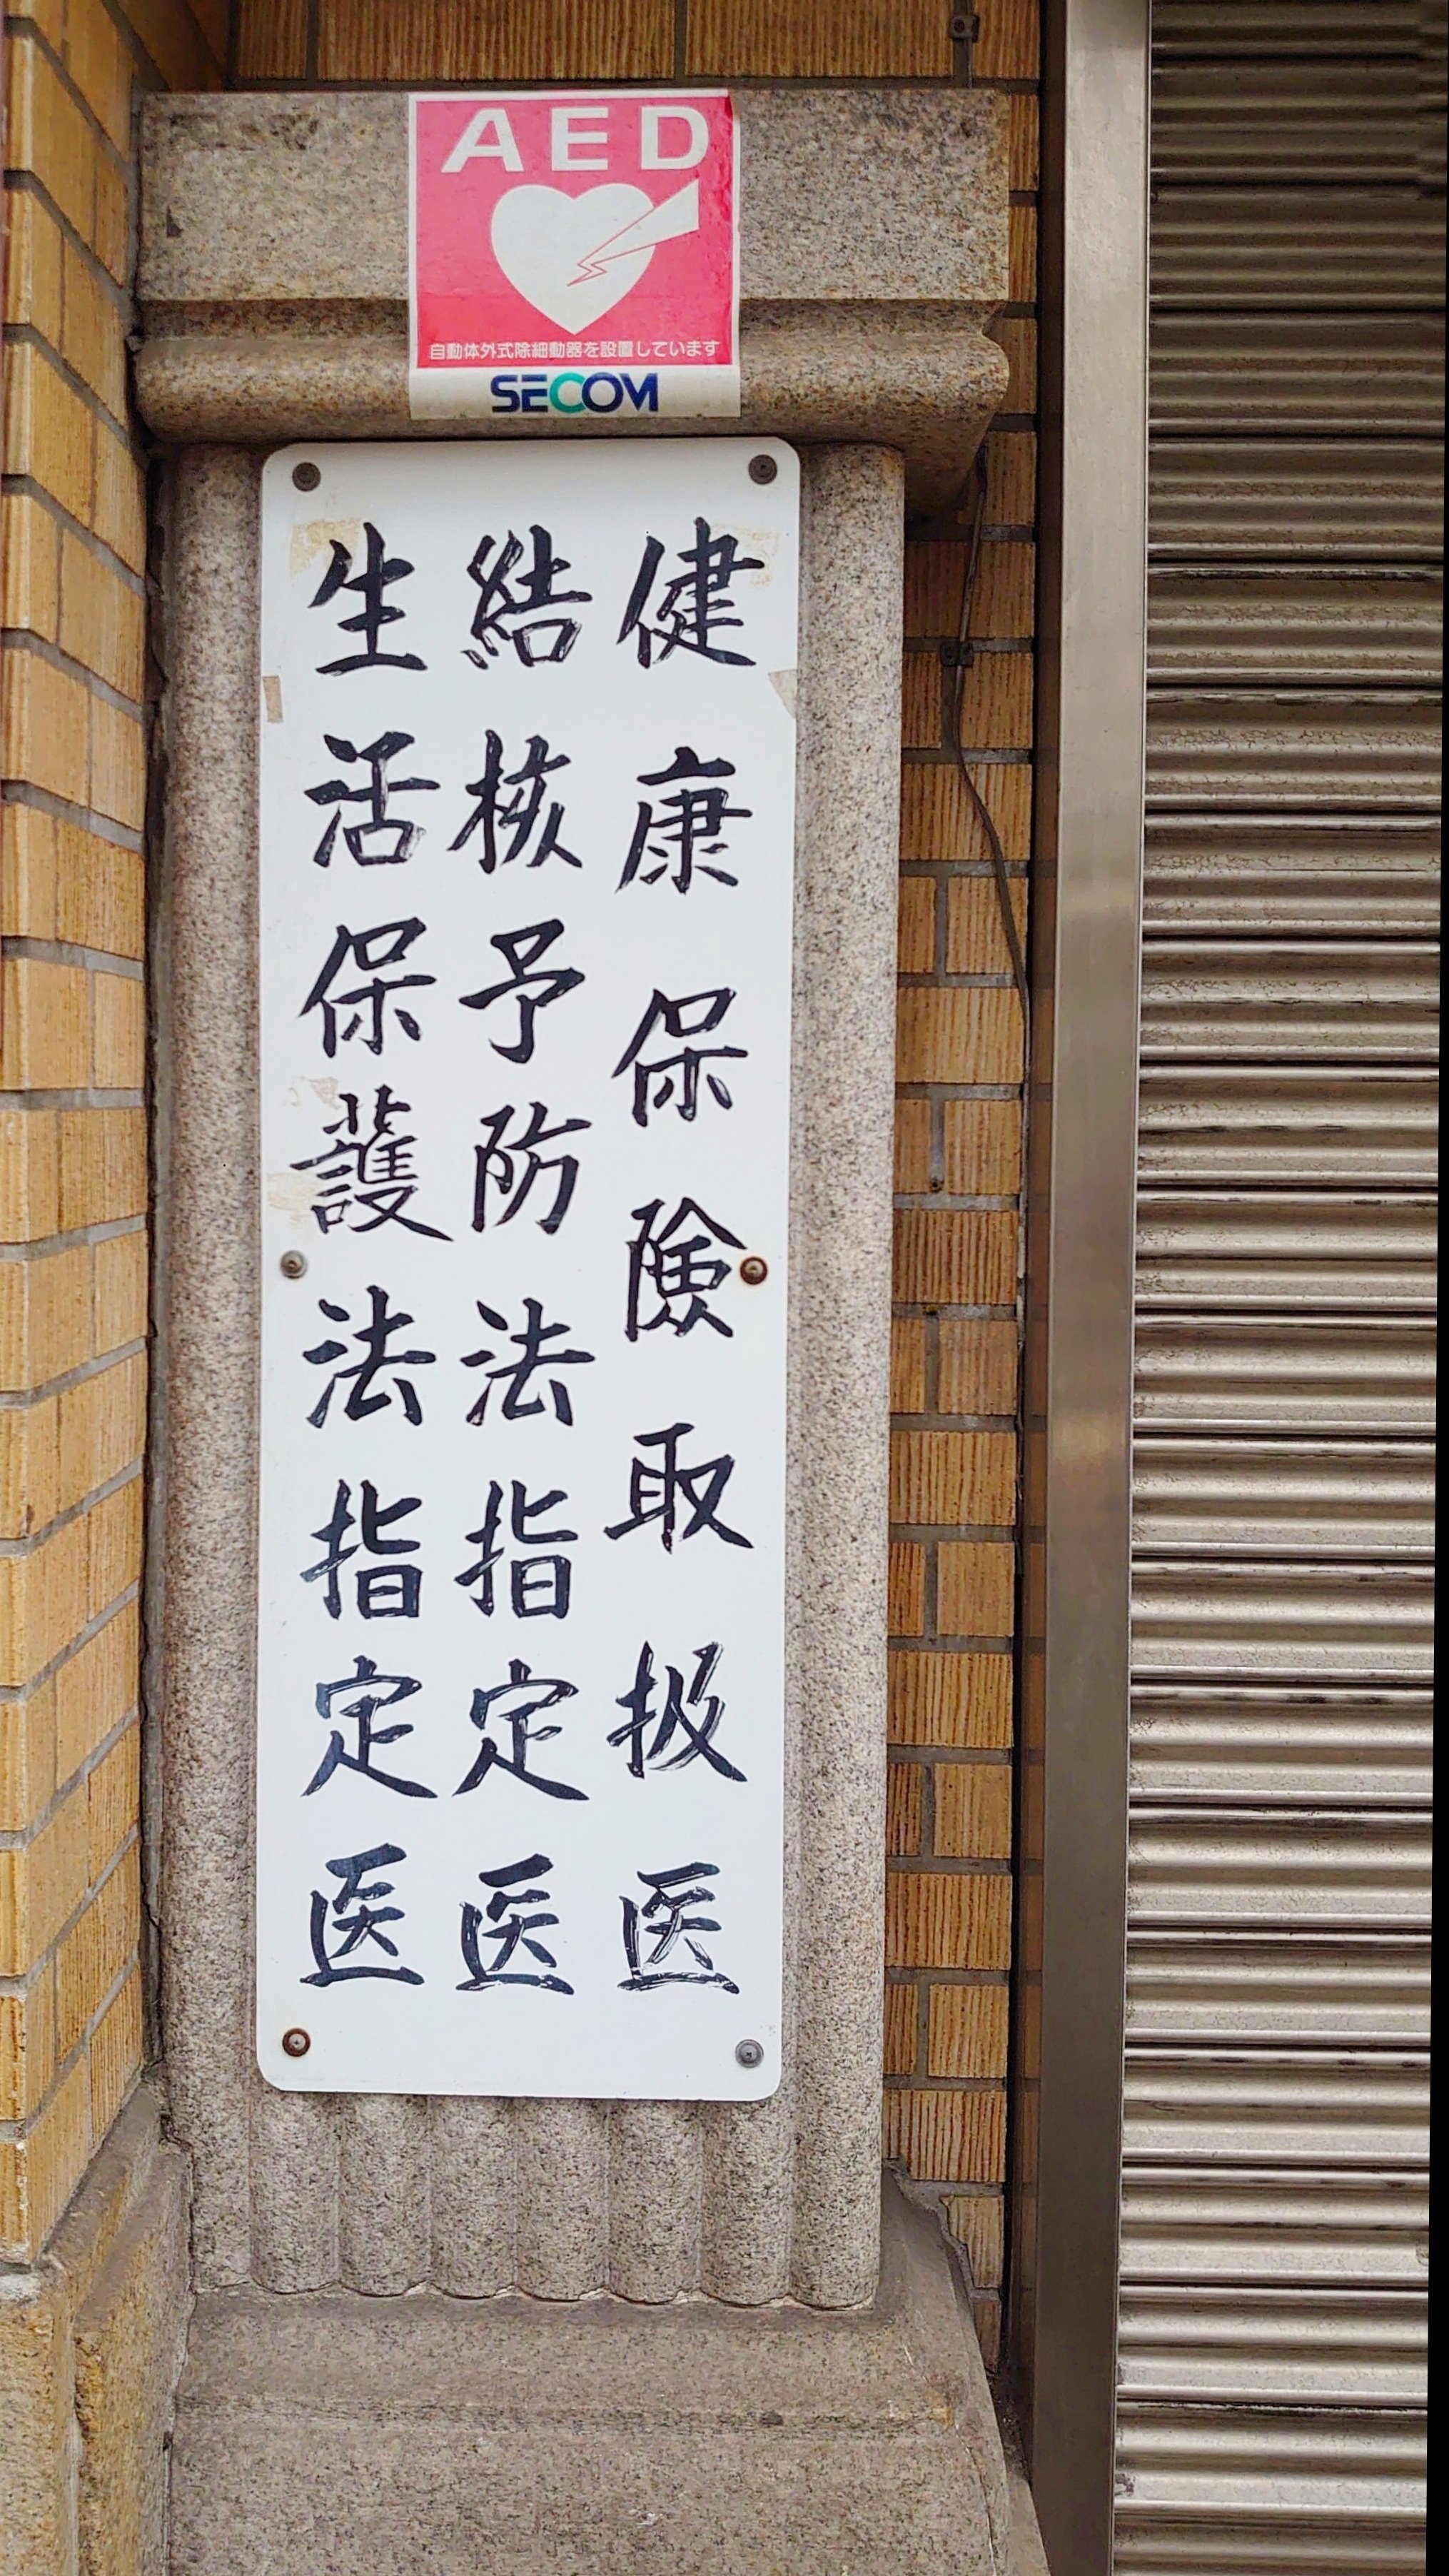 AED
自動体外式除細動器を設置しています
SECOM
健康保険取扱医
結核予防法指定医
生活保護法指定医